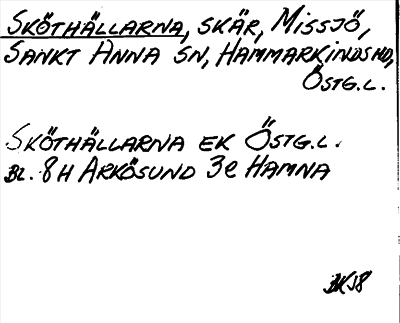 SKÖTHÄLLARNA, SKÄR, MISSJÖ,
SANKT ANNA SN, HAMMARKINDS HD,
ÖSTG.L.
SKÖTHÄLLARNA EK ÖSTG.L.
BL. 8H ARKÖSUND 3e HAMNA